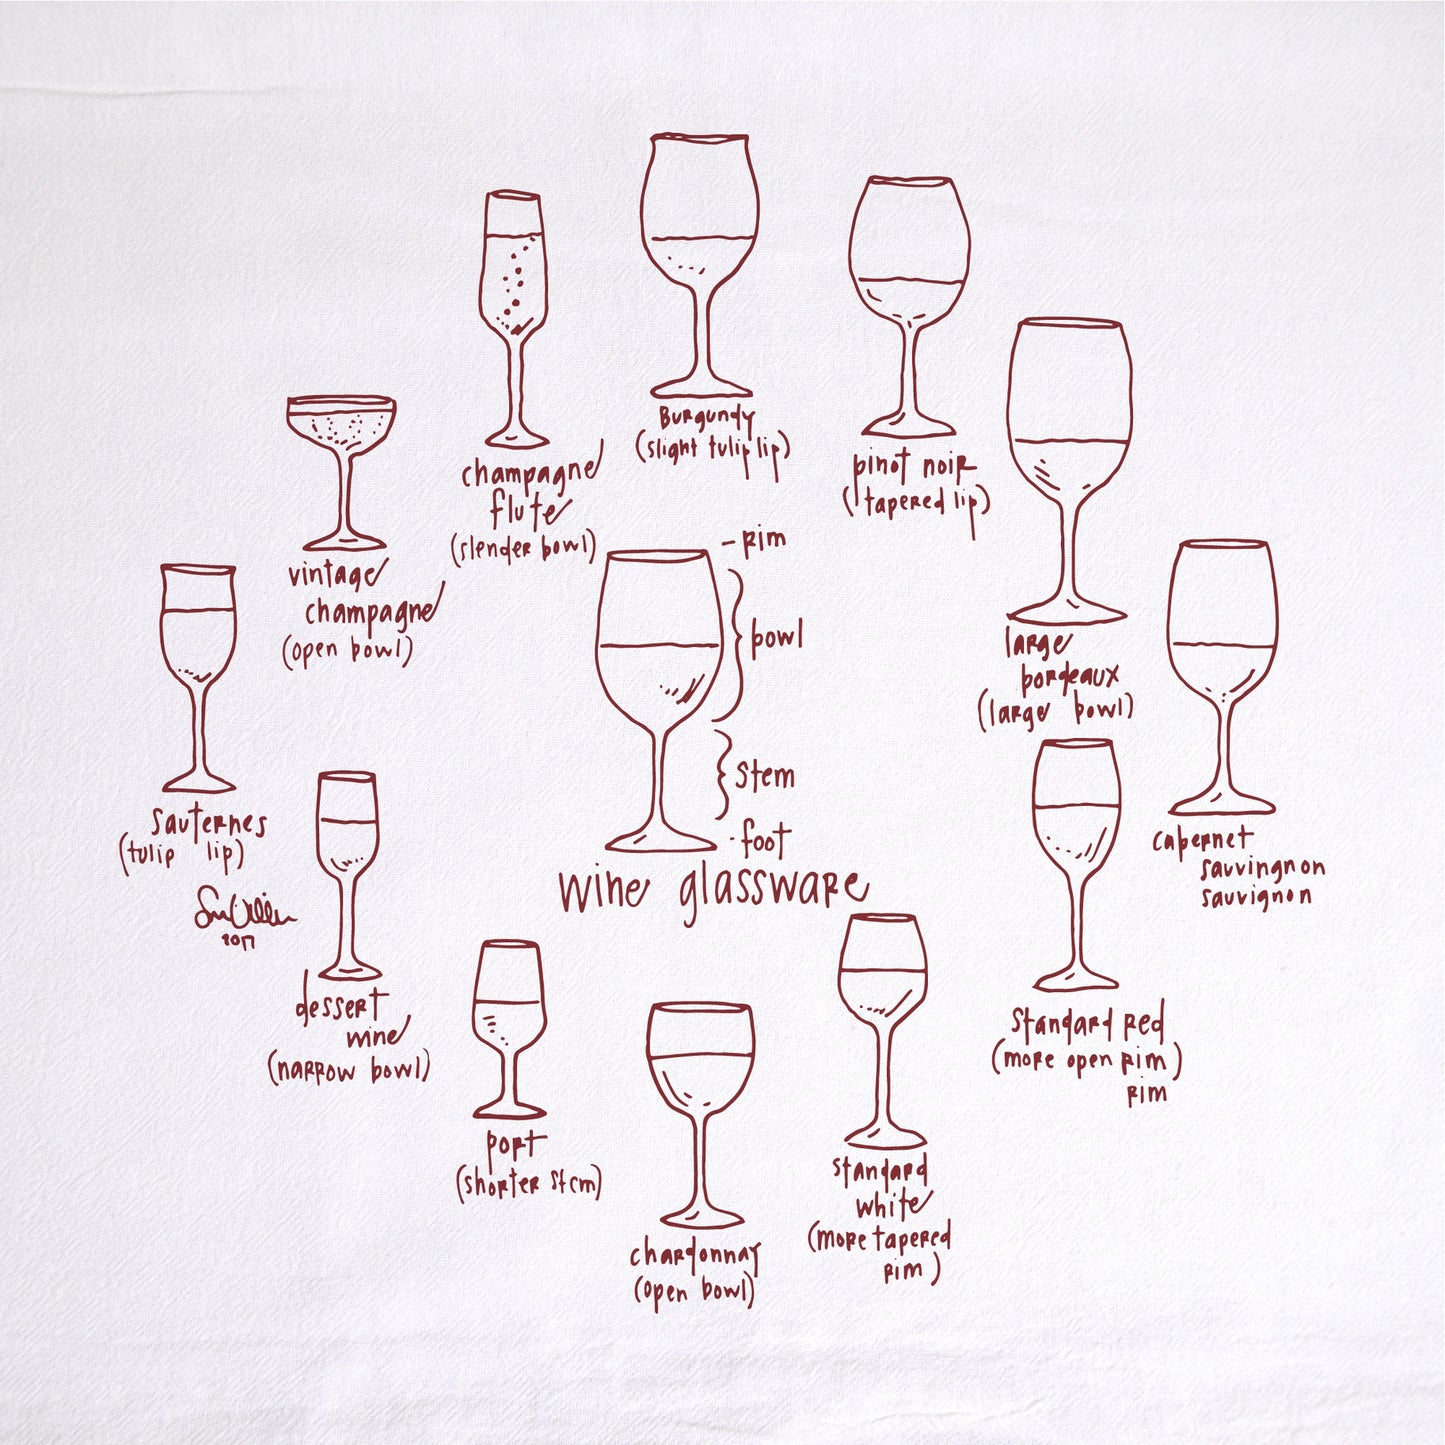 Burgundy
(slight tulip lip)
pinot noir
(tapered lip)
champagne
flute
(slender bowl)
vintage
champagne
(open bowl)
large
bordeaux
(large bowl)
- rim
bowl
stem
- foot
wine glassware
sauternes
(tulip lip)
2017
cabernet
sauvingnon
sauvignon
dessert
wine
(narrow bowl)
standard red
(more open rim)
rim
port
(shorter stem)
standard
white
(more tapered
rim)
chardonnay
(open bowl)